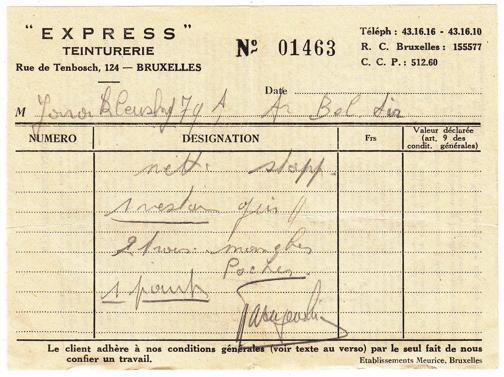 "EXPRESS"
TEINTURERIE
Rue de Tenbosch, 124 — BRUXELLES
Nº 01463
Téléph : 43.16.16 - 43.16.10
R. C. Bruxelles : 155577
C. C. P. : 512.60
Date
M 79 A, Av Bel Air
NUMERO DESIGNATION Frs Valeur déclarée (art. 9 des condit. générales)
nett. stopp.
1 veston gris
manches
Poches
1 pant
Le client adhère à nos conditions générales (voir texte au verso) par le seul fait de nous
confier un travail.
Etablissements Meurice, Bruxelles